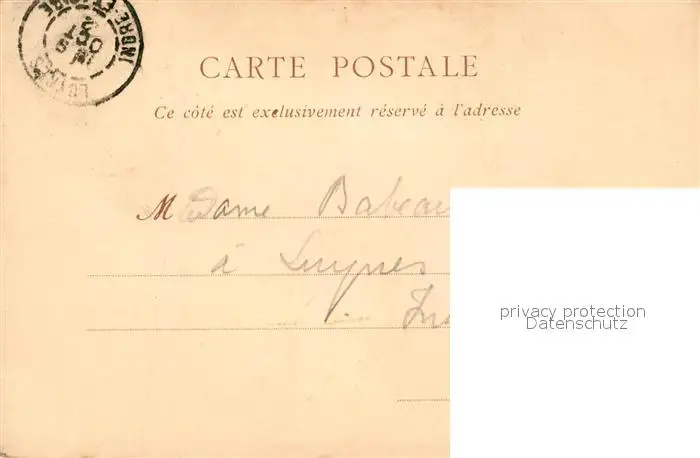 LUYNES INDRE-ET-LOIRE
CARTE POSTALE
Ce côté est exclusivement réservé à l'adresse
Madame
à Luynes
privacy protection
Datenschutz